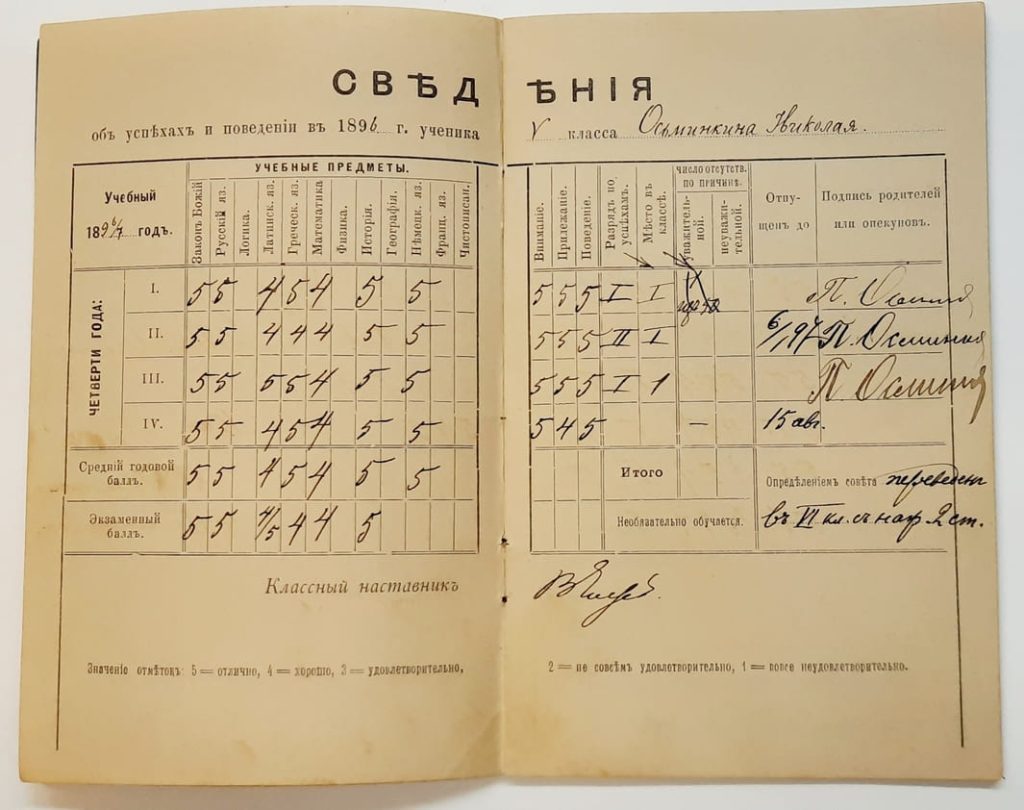 СВѢДѢНІЯ
объ успѣхахъ и поведеніи въ 1896 г. ученика V класса Осьминкина Николая.
Учебный 189 6/7 годъ.
УЧЕБНЫЕ ПРЕДМЕТЫ.
Законъ Божій Русскій яз. Логика. Латинск. яз. Греческ. яз. Математика Физика. Исторія. Географія. Нѣмецк. яз. Франц. яз. Чистописан.
Вниманіе. Прилежаніе. Поведеніе. Разрядъ по успѣхамъ. Мѣсто въ классѣ.
ЧИСЛО ОТСУТСТВ. ПО ПРИЧИНѢ.
уважительной. неуважительной.
Отпущенъ до
Подпись родителей или опекуновъ.
ЧЕТВЕРТИ ГОДА:
I. 5 5 4 5 4 5 5 5 5 5 I I П.
II. 5 5 4 4 4 5 5 5 5 5 II I 6/I 97 П.
III. 5 5 5 5 4 5 5 5 5 5 I 1 П.
IV. 5 5 4 5 4 5 5 5 4 5 — 15 авг.
Средній годовой баллъ. 5 5 4 5 4 5 5 Итого
Опредѣленіемъ совѣта переведенъ
Экзаменный баллъ. 5 5 4/5 4 4 5 Необязательно обучается.
въ VI кл. съ наг. 2 ст.
Классный наставникъ
Значеніе отмѣтокъ: 5 = отлично, 4 = хорошо, 3 = удовлетворительно, 2 = не совсѣмъ удовлетворительно, 1 = вовсе неудовлетворительно.